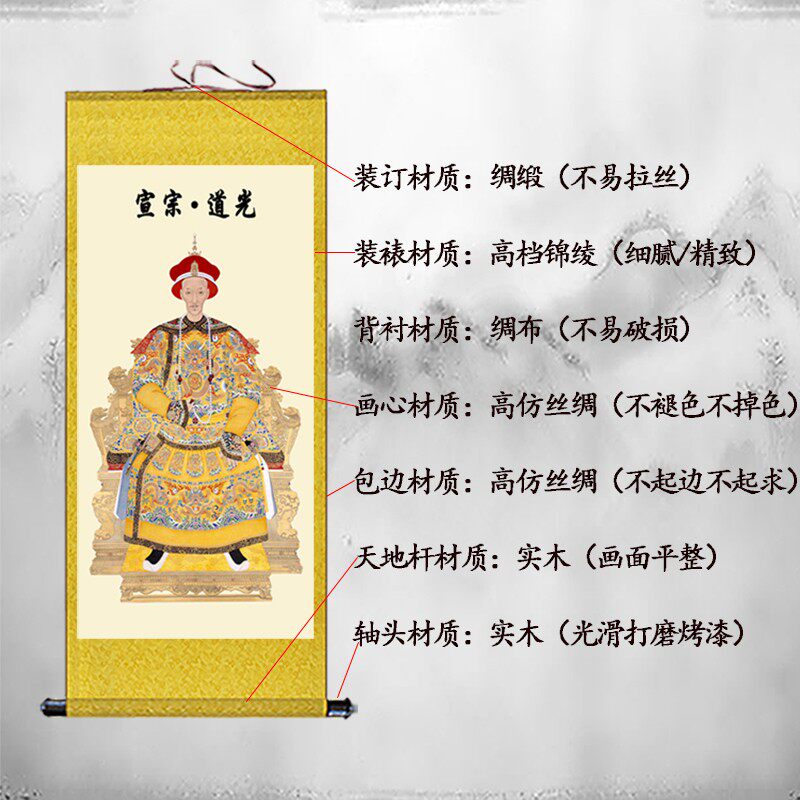 宣宗·道光
装订材质：绸缎（不易拉丝）
装裱材质：高档锦绫（细腻/精致）
背衬材质：绸布（不易破损）
画心材质：高仿丝绸（不褪色不掉色）
包边材质：高仿丝绸（不起边不起求）
天地杆材质：实木（画面平整）
轴头材质：实木（光滑打磨烤漆）